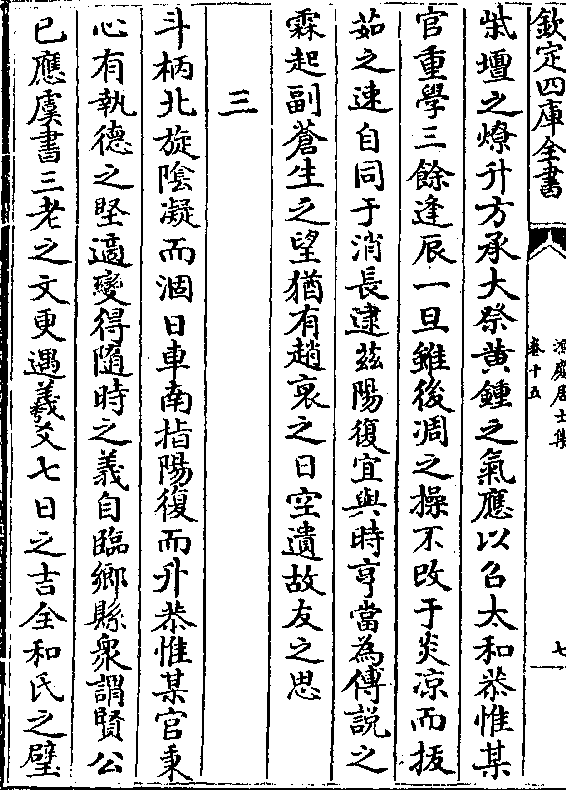 欽定四庫全書
鴻慶居士集
卷十五
七
柴壇之燎升方承大祭黄鍾之氣應以召太和恭惟某
官重學三餘逢辰一旦雖後凋之操不改于炎凉而拔
茹之速自同于消長逮兹陽復宜與時亨當為傅説之
霖起副蒼生之望猶有趙衰之日空遺故友之思
三
斗柄北旋隂凝而涸日車南指陽復而升恭惟某官秉
心有執德之堅適變得隨時之義自臨鄉縣衆謂賢公
已應虞書三老之文更遇羲爻七日之吉全和氏之璧